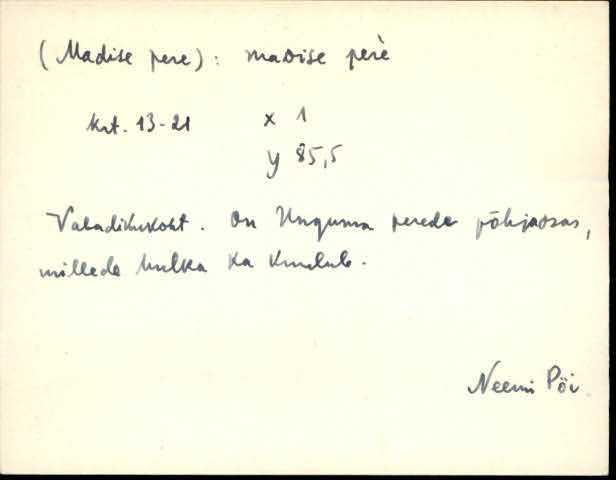 (Madise pere): maDise pere̍
krt. 13-21 x 1
y 85,5
Vabadikukoht. On Unguma perede põhjaosas,
millede hulka ka kuulub.
Neemi Pöi